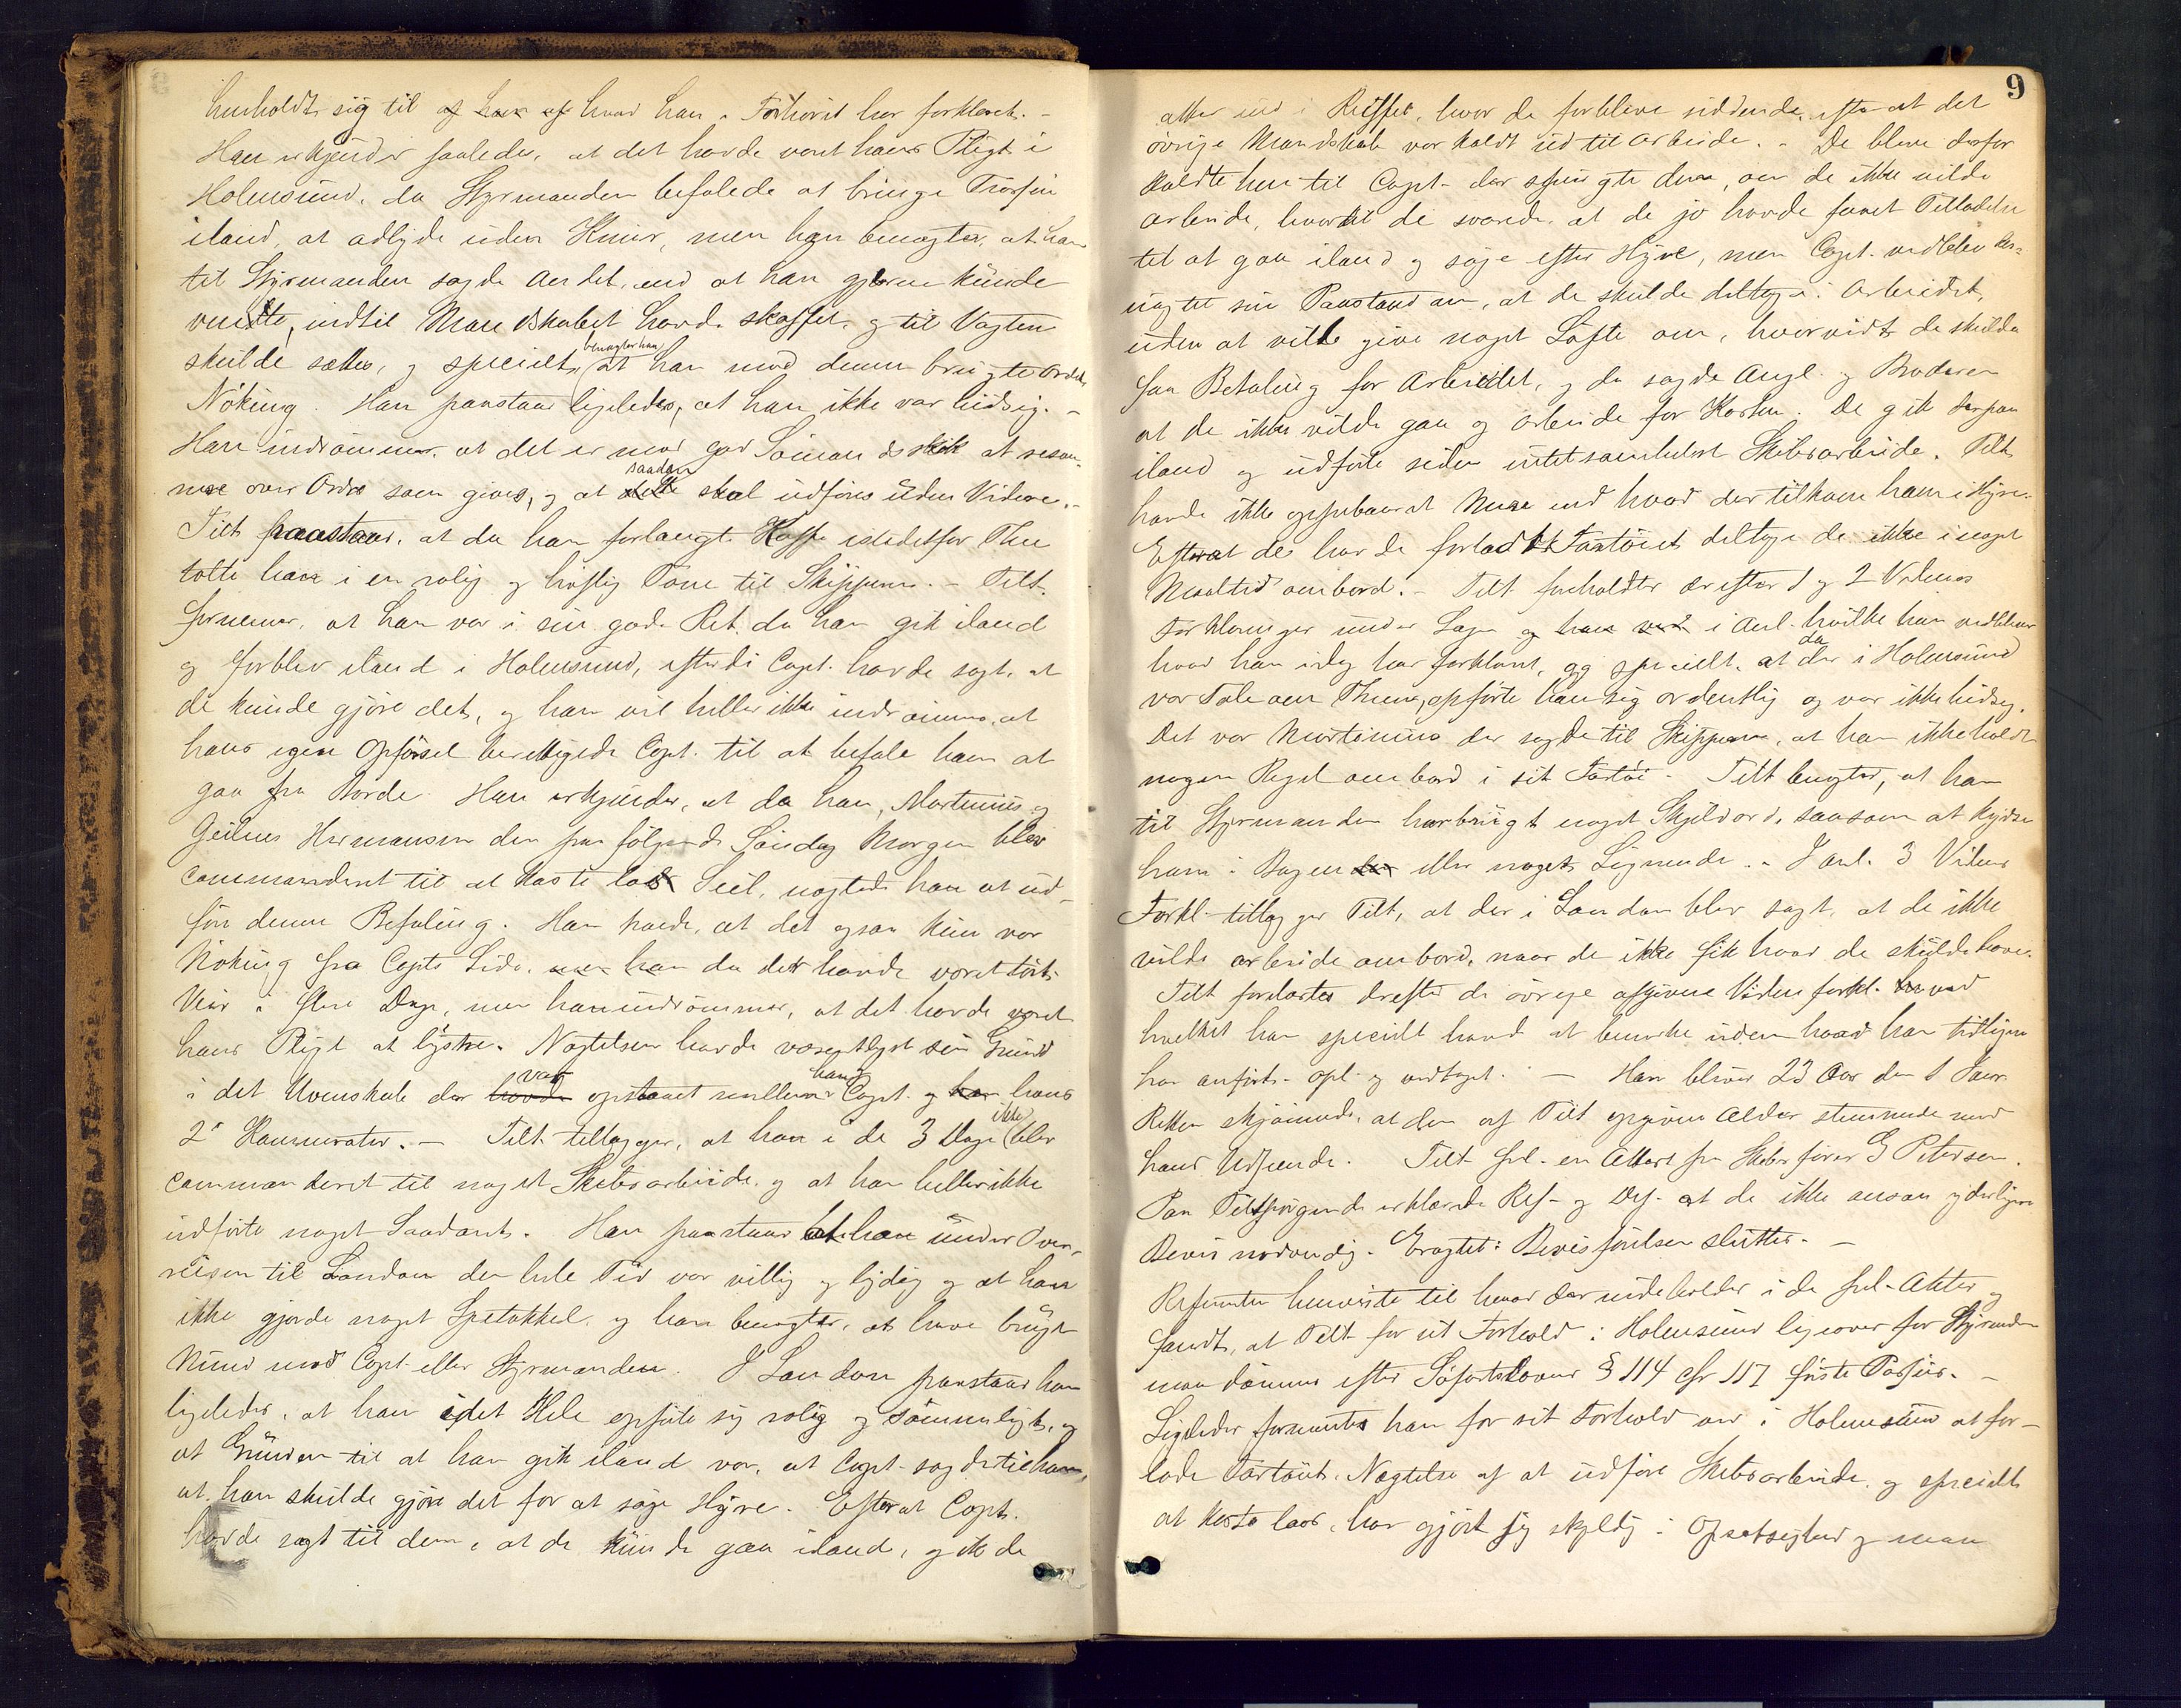 henholdt sig til af ham af hvad han i Forhöret har forklaret. -
Han erkjender saaledes, at det havde været hans Pligt i
Holmsund, da Styrmanden befalede at bringe Trossen
iland, at adlyde uden Knur, men han benægter, at han
til Styrmanden sagde Andet, end at han gjerne kunde
vente, indtil Mandskabet havde skaffet, og til Vagten
skulde sættes, og specielt benægter han at han mod denne brugte Ordet
Nöking. Han paastaar ligeledes, at han ikke var hidsig. -
Han indrömmer, at det er mod god Sömandsskik at reson-
nere over Ordre som gives, og at saadan skal udföres uden Videre. -
Tilt paastaar, at da han forlangte Kaffe istedetfor The
talte han i en rolig og höflig Tone til Skipperen. - Tilt.
formener, at han var i sin gode Ret, da han gik iland
og forblev iland i Holmsund, efterdi Capt. havde sagt, at
de kunde gjöre det, og han vil heller ikke indrömme, at
hans egen Opförsel berettigede Capt. til at befale ham at
gaa fra Borde. Han erkjender, at da han, Martinius og
Hermansen den paa fölgende Söndag Morgen blev
commanderet til at kaste los Seil, nægtede han at ud-
före denne Befaling. Han troede, at det ogsaa kun var
Nöking fra Capts Side, men han da det havde været tört
Veir i flere Dage, men han indrömmer, at det havde været
hans Pligt at lystre. Nægtelsen havde væsentligst sin Grund
i det Uvenskab der havde var opstaaet mellem Capt. og han hans
2de Kammerater. - Tilt. tillægger, at han i de 3 Dage ikke blev
commanderet til noget Skibsarbeide, og at han heller ikke
udförte noget Saadant. Han paastaar at han under Over-
reisen til London den hele Tid var villig og lydig og at han
ikke gjorde noget Spetakkel, og han benægter, at have brugt
Mund mod Capt. eller Styrmanden. I London paastaar han
ligeledes, at han i det Hele opförte sig rolig og sömmeligt, og
at Grunden til at han gik iland var, at Capt. sagde til ham,
at han skulde gjöre det for at söge Hyre. Efterat Capt.
havde sagt til dem, at de kunde gaa iland, gik de
9
atter ind i Ruffet, hvor de forbleve siddende, efter at det
övrige Mandskab var kaldt ud til Arbeide. - De bleve derfor
kaldte hen til Capt. der spurgte dem, om de ikke vilde
arbeide, hvortil de svarede, at de jo havde faaet Tilladelse
til at gaa iland og söge efter Hyre, men Capt. vedblev des-
uagtet sin Paastand om, at de skulde deltage i Arbeidet,
uden at ville give noget Löfte om, hvorvidt de skulde
faa Betaling for Arbeidet, og da sagde Angl. og Broderen
at de ikke vilde gaa og arbeide for Kosten. De gik derpaa
iland og udförte siden intetsomhelst Skibsarbeide. Tilt.
havde ikke oppebaaret Mere end hvad der tilkom ham i Hyre.
Efterat de havde forladt Fartöiet deltoge de ikke i noget
Maaltid ombord. - Tilt foreholdtes derefter 1 og 2 Vidnes
Forklaringer under Sagen og han ved i Anl. hvilke han vedblev
hvad han idag har forklaret, og specielt, at da der i Holmsund
var Tale om Theen, opförte han sig ordentlig og var ikke hidsig.
Det var Martinius der sagde til Skipperen, at han ikke holdt
nogen Regel ombord i sit Fartöi. - Tilt benægter, at han
til Styrmanden har brugt noget Skjeldsord, saasom at kysse
ham i Bagen eller noget Lignende. - I Anl. 3 Vidnes
Forkl. tillægger Tilt, at der i London blev sagt, at de ikke
vilde arbeide ombord, naar de ikke fik hvad de skulde have.
Tilt foreholdtes derefter de övrige afgivne Vidneforkl. ved
hvilket han specielt havde at bemærke uden hvad han tidligere
har anfört. - Opl. og vedtaget. - Han bliver 23 Aar den 1 Janr.
Retten skjönnede, at den af Tilt opgivne Alder stemmede med
hans Udseende. Tilt frl. en Attest fra Skibsförer G Petersen.
Paa Tilspörgende erklærede Ref- og Def- at de ikke ansaa yderligere
Bevis nödvendig. Eragtet: Bevisförelsen sluttes. -
Referenten henviste til hvad der indeholdes i de frl. Akter og
fandt, at Tilt for sit Forhold i Holmsund ligeover for Styrmanden
maa dömmes efter Söfartslovens § 114 cfr 117 förste Passus. -
Ligeledes formentes han for sit Forhold ved i Holmsund at for-
lade Fartöiet, Nægtelse af at udföre Skibsarbeide, og specielt
at kaste laas, har gjort sig skyldig i Opsætsighed og maa